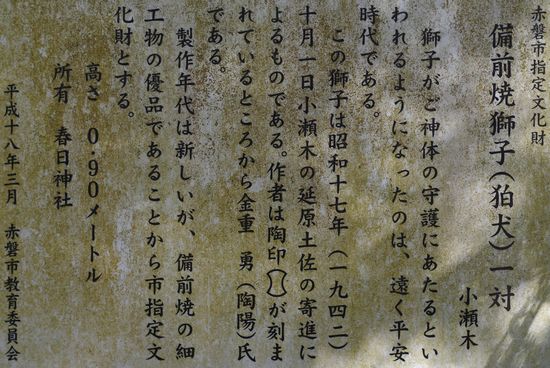 赤磐市指定文化財
備前焼獅子(狛犬)一対
小瀬木
獅子がご神体の守護にあたるとい
われるようになったのは、遠く平安
時代である。
この獅子は昭和十七年(一九四二)
十月一日小瀬木の延原土佐の寄進に
よるものである。作者は陶印が刻ま
れているところから金重 勇(陶陽)氏
である。
製作年代は新しいが、備前焼の細
工物の優品であることから市指定文
化財とする。
高さ 0.90メートル
所有 春日神社
平成十八年三月 赤磐市教育委員会